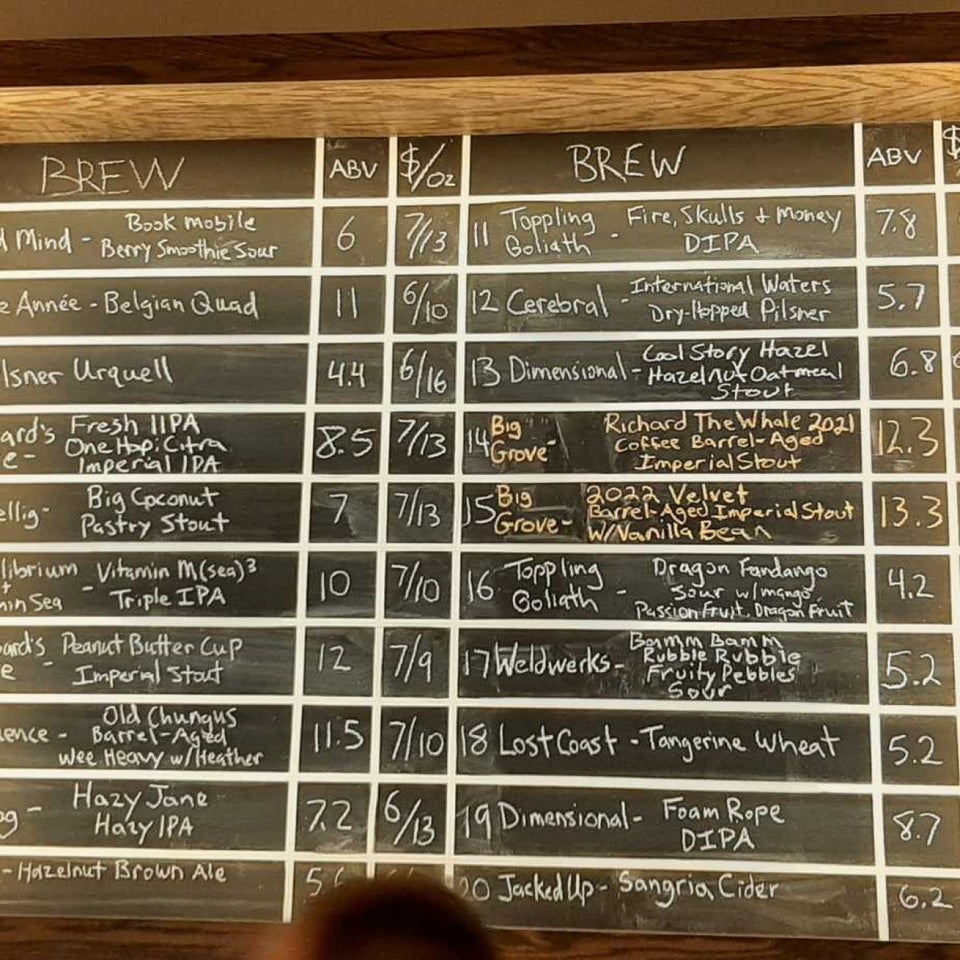 BREW ABV $/oz BREW ABV $
d Mind - Book mobile
Berry Smoothie Sour 6 7/13
e Année - Belgian Quad 11 6/10
lsner Urquell 4.4 6/16
ard's Fresh IIPA
e - One Hop: Citra
Imperial IPA 8.5 7/13
ellig - Big Coconut
Pastry Stout 7 7/13
librium - Vitamin M(sea)³
min Sea Triple IPA 10 7/10
ard's Peanut Butter Cup
e - Imperial Stout 12 7/9
ence - Old Chungus
Barrel-Aged
Wee Heavy w/Heather 11.5 7/10
og - Hazy Jane
Hazy IPA 7.2 6/13
- Hazelnut Brown Ale 5.6
11 Toppling Goliath - Fire, Skulls + Money
DIPA 7.8
12 Cerebral - International Waters
Dry-Hopped Pilsner 5.7
13 Dimensional - Cool Story Hazel
Hazelnut Oatmeal
Stout 6.8
14 Big Grove - Richard The Whale 2021
Coffee Barrel-Aged
Imperial Stout 12.3
15 Big Grove - 2022 Velvet
Barrel-Aged Imperial Stout
w/Vanilla Bean 13.3
16 Toppling Goliath - Dragon Fandango
Sour w/mango,
Passion Fruit, Dragon Fruit 4.2
17 Weldwerks - Bamm Bamm
Rubble Rubble
Fruity Pebbles
Sour 5.2
18 Lost Coast - Tangerine Wheat 5.2
19 Dimensional - Foam Rope
DIPA 8.7
20 Jacked Up - Sangria Cider 6.2